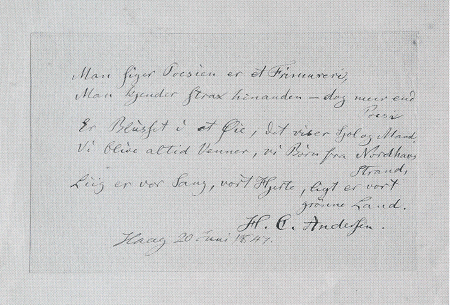 Man siger Poesien er et Frimureri,
Man kjender strax hinanden — dog meer end
Er Blusset i et Øie, det viser Sjel og Aand,
Vi blive altid Venner, vi Børn fra Nordhavs
Strand,
Liig er vor Sang, vort Hjerte, ligt er vort
grönne Land.
H. C. Andersen.
Haag 20 Juni 1847.